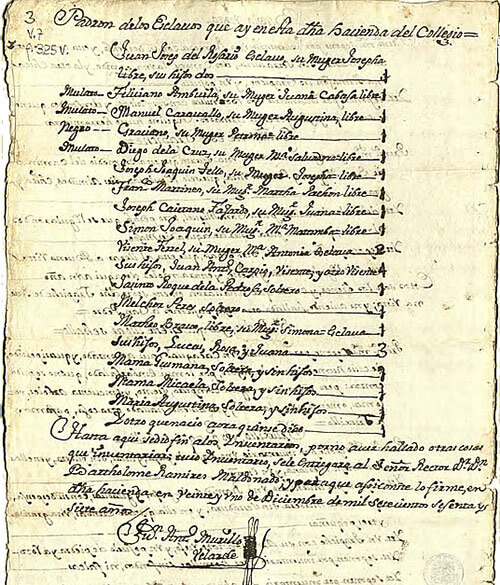 3
V.7
f.325V.
Padron de los Esclavos que ay en esta dha hacienda del Collegio=
Juan Josep del Rosario Esclavo, su Muger Josepha
libre, sus hijos dos
Mulato - Feliciano Ambuila, su Muger Juana Cabosa libre 1
Mulato - Manuel Caravallo, su Muger Augustina, libre 1
Negro - Graciano, su Muger libre 1
Mulato - Diego de la Cruz, su Muger Ma. libre 1
Joseph Joachin Tello, su Muger Josepha libre 1
Juan Martines, su Mugr. Martha Pachon libre 1
Joseph Caietano Faxardo, su Mugr. Juana libre 1
Simon Joaquin, su Mugr. Ma. libre 1
Vicente su Muger, Ma. Antonia Esclava 2
Sus hijos, Juan Anto. Vicente, y otro Vicente 4
Roque de la Soltero 1
Melchor Soltero 1
Matheo Bravo, libre, su Mugr. Simona Esclava 1
Sus hijos, Lucas, Rosa, y Juana 3
Mama Soltera, y sin hijos
Mama Micaela, Soltera, y sin hijos
Maria Augustina, Soltera, y sin hijos
y otro que nacio aora
Hasta aqui se dio fin a los Ynventarios, por no aver hallado otras cosas
que inventariar; cuio Ynventario, se le entregara al Señor Rector Dr. Dn.
Bartholome Ramires Maldonado, y para que assi conste lo firme, en
dha hacienda, en Veinte y Vno de Diciembre de mil setecientos sesenta y
siete años
Jun. Anto. Murillo
Velarde